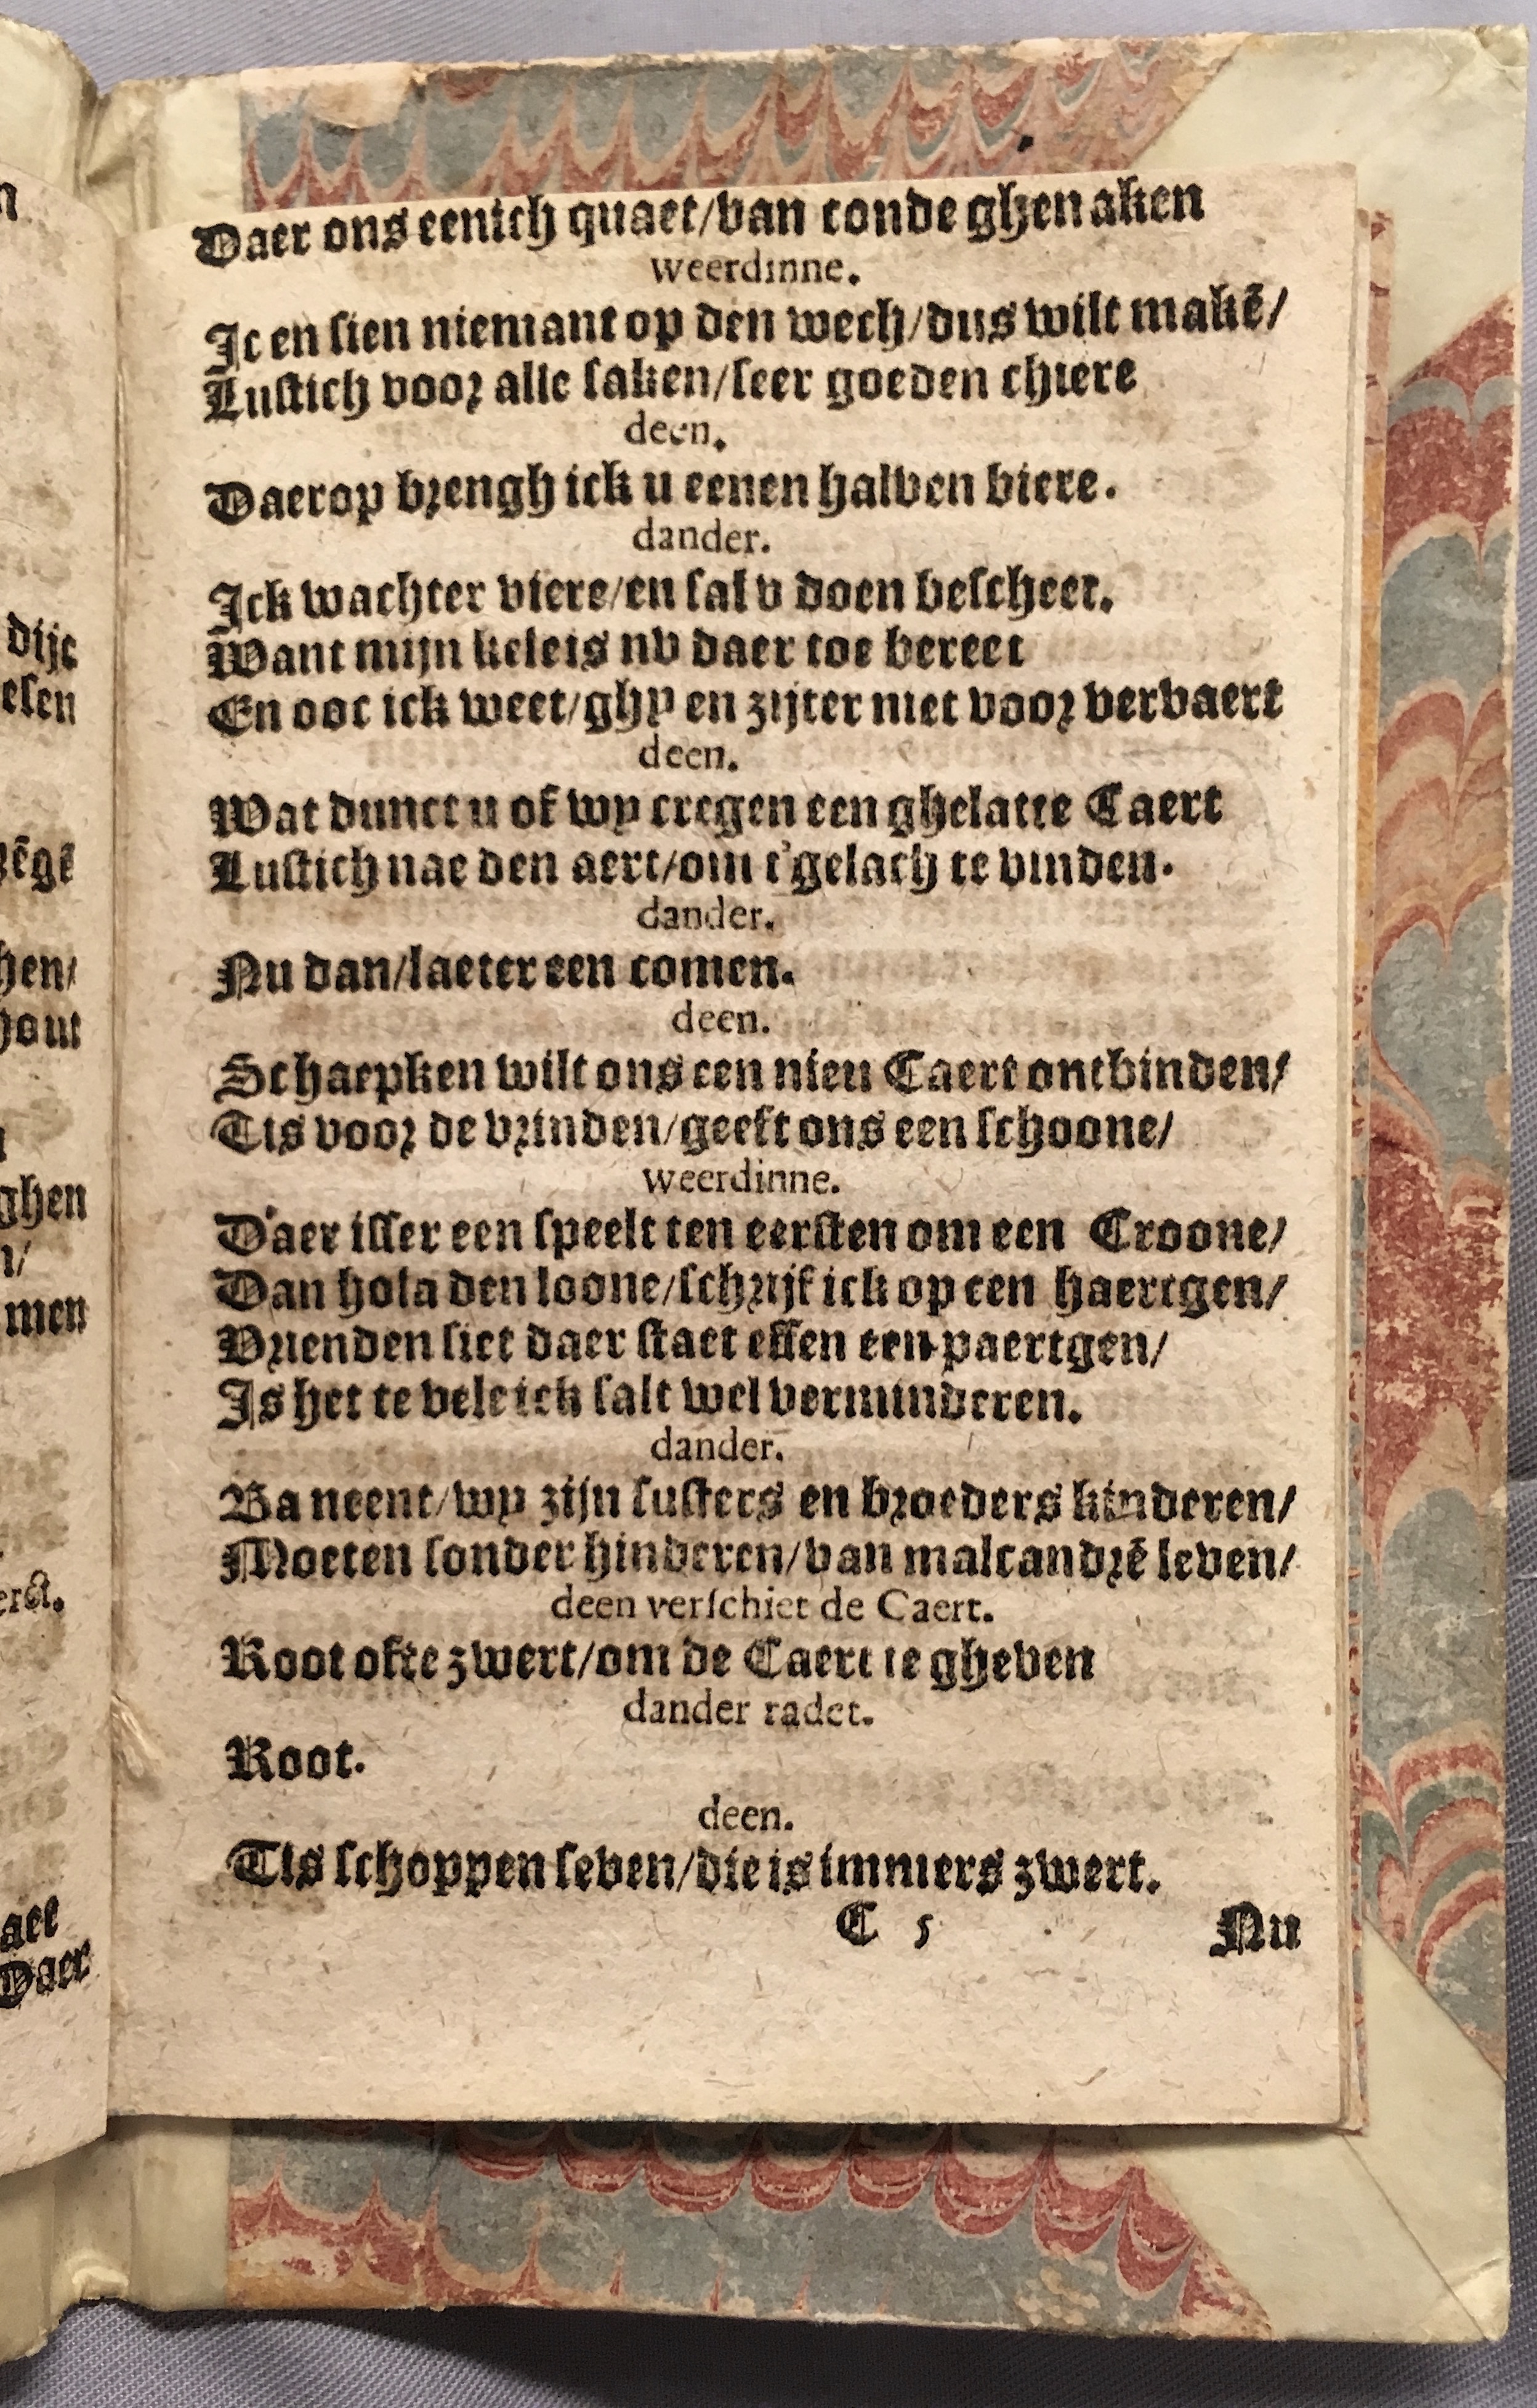 Daer ons eenich quaet/van conde ghenaken
weerdinne.
Ic en sien niemant op den wech/dus wilt makē/
Lustich voor alle saken/seer goeden chiere
deen.
Daerop brengh ick u eenen halven biere.
dander.
Ick wachter viere/en sal v doen bescheet.
Want mijn kele is nv daer toe bereet
En ooc ick weet/ghy en zijter niet voor vervaert
deen.
Wat dunct u of wy cregen een ghelatte Caert
Lustich nae den aert/om t'gelach te vinden.
dander.
Nu dan/laeter een comen.
deen.
Schaepken wilt ons een nieu Caert ontbinden/
Tis voor de vrinden/geeft ons een schoone/
weerdinne.
Daer isser een speelt ten eersten om een Croone/
Dan hola den loone/schrijf ick op een haertgen/
Vrienden siet daer staet effen een paertgen/
Is het te vele ick salt wel verminderen.
dander.
Ba neent/wy zijn susters en broeders kinderen/
Moeten sonder hinderen/van malcandrē leven/
deen verschiet de Caert.
Root ofte zwert/om de Caert te gheven
dander radet.
Root.
deen.
Tis schoppen seven/die is immers zwert.
C 5
Nu
dije
esen
hen/
hout
ghen
men
Daer